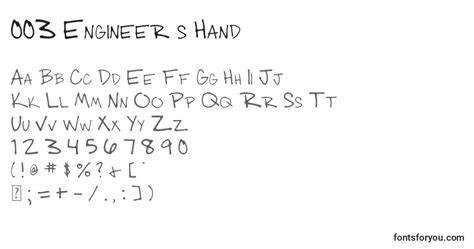 003 Engineer s Hand
Aa Bb Cc Dd Ee Ff Gg Hh Ii Jj
Kk Ll Mm Nn Oo Pp Qq Rr Ss Tt
Uu Vv Ww Xx Yy Zz
1 2 3 4 5 6 7 8 9 0
( ! @ # $ % ? & [ '
; = + - / . , : ] )
fontsforyou.com